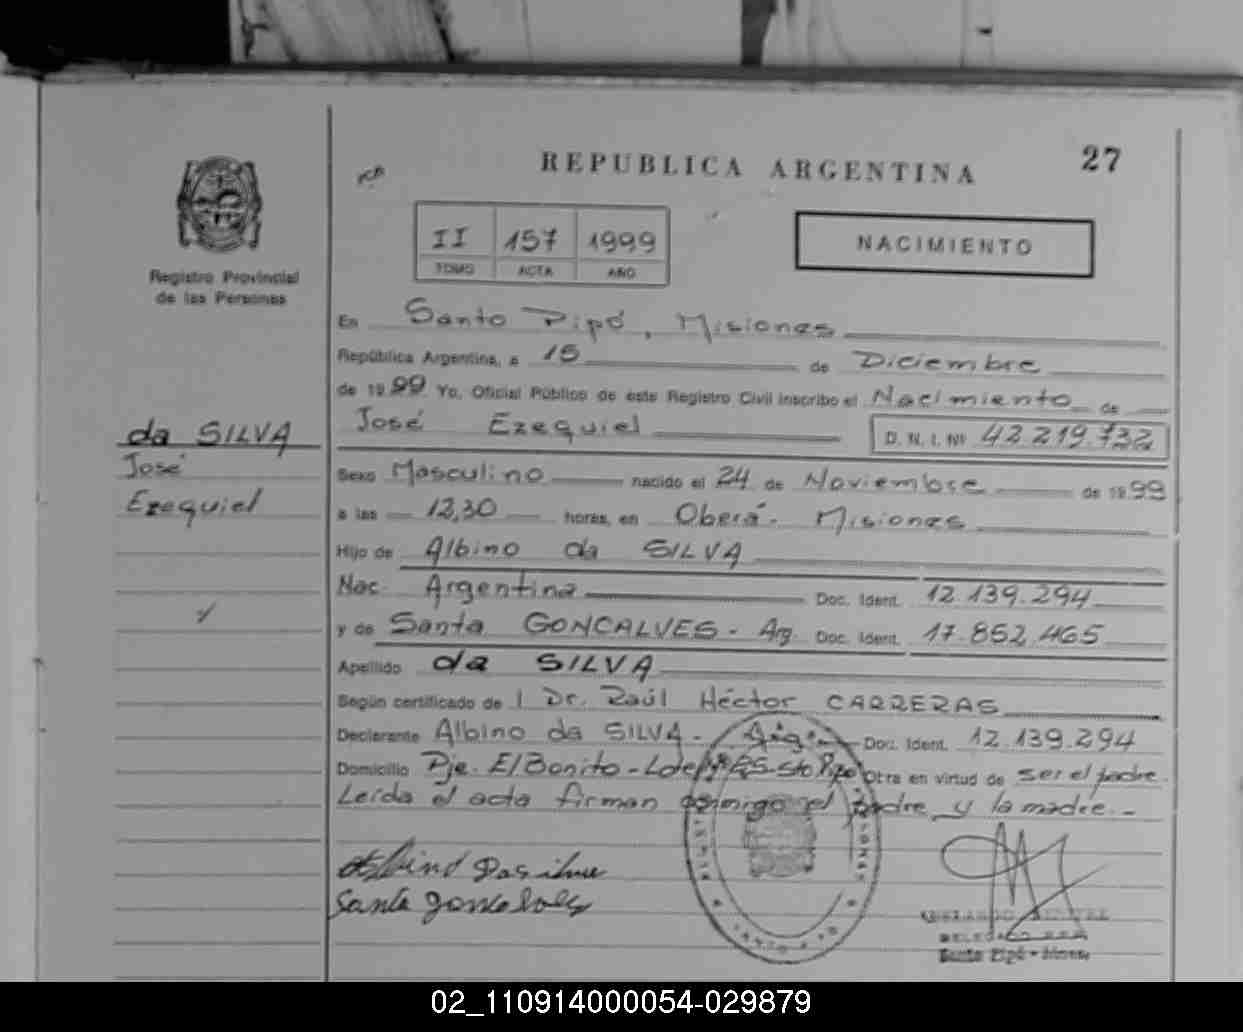 27
REPUBLICA ARGENTINA
II 157 1999
TOMO ACTA AÑO
NACIMIENTO
Registro Provincial
de las Personas
En Santo Pipó, Misiones
República Argentina, a 15 de Diciembre
de 1999 Yo, Oficial Público de este Registro Civil inscribo el Nacimiento de
José Ezequiel D. N. I. Nº 42.219.732
da SILVA
José
Ezequiel
Sexo Masculino nacido el 24 de Noviembre de 1999
a las 12,30 horas, en Oberá - Misiones
Hijo de Albino da SILVA
Nac. Argentina Doc. Ident. 12.139.294
y de Santa GONCALVES - Arg. Doc. Ident. 17.852.465
Apellido da SILVA
Según certificado de l Dr. Raúl Héctor CARRERAS
Declarante Albino da SILVA - Arg. Doc. Ident. 12.139.294
Domicilio Pje. El Bonito - Lote Sto Pipo Otra en virtud de ser el padre.
Leída el acta firman conmigo el padre y la madre. -
Santa
DELEGADO
Santo Pipó - Mnes.
02_110914000054-029879